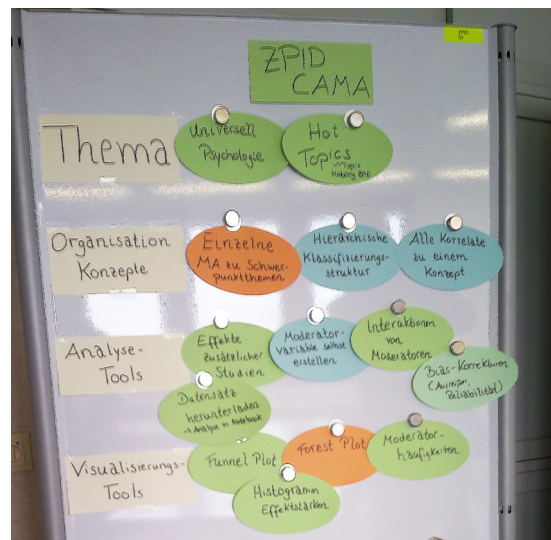 ZPID
CAMA
Thema
Universell
Psychologie
Hot
Topics
→ Topic
Organisation
Konzepte
Einzelne
MA zu Schwer-
punktthemen
Hierarchische
Klassifizierungs-
struktur
Alle Korrelate
zu einem
Konzept
Analyse-
Tools
Effekte
zusätzlicher
Studien
Moderator-
variable selbst
erstellen
Interaktionen
von
Moderatoren
Bias-Korrekturen
(Ausreißer,
Reliabilität)
Datensatz
herunterladen
→ Analyse in Notebook
Visualisierungs-
Tools
Funnel Plot
Forest Plot
Moderator-
häufigkeiten
Histogramm
Effektstärken